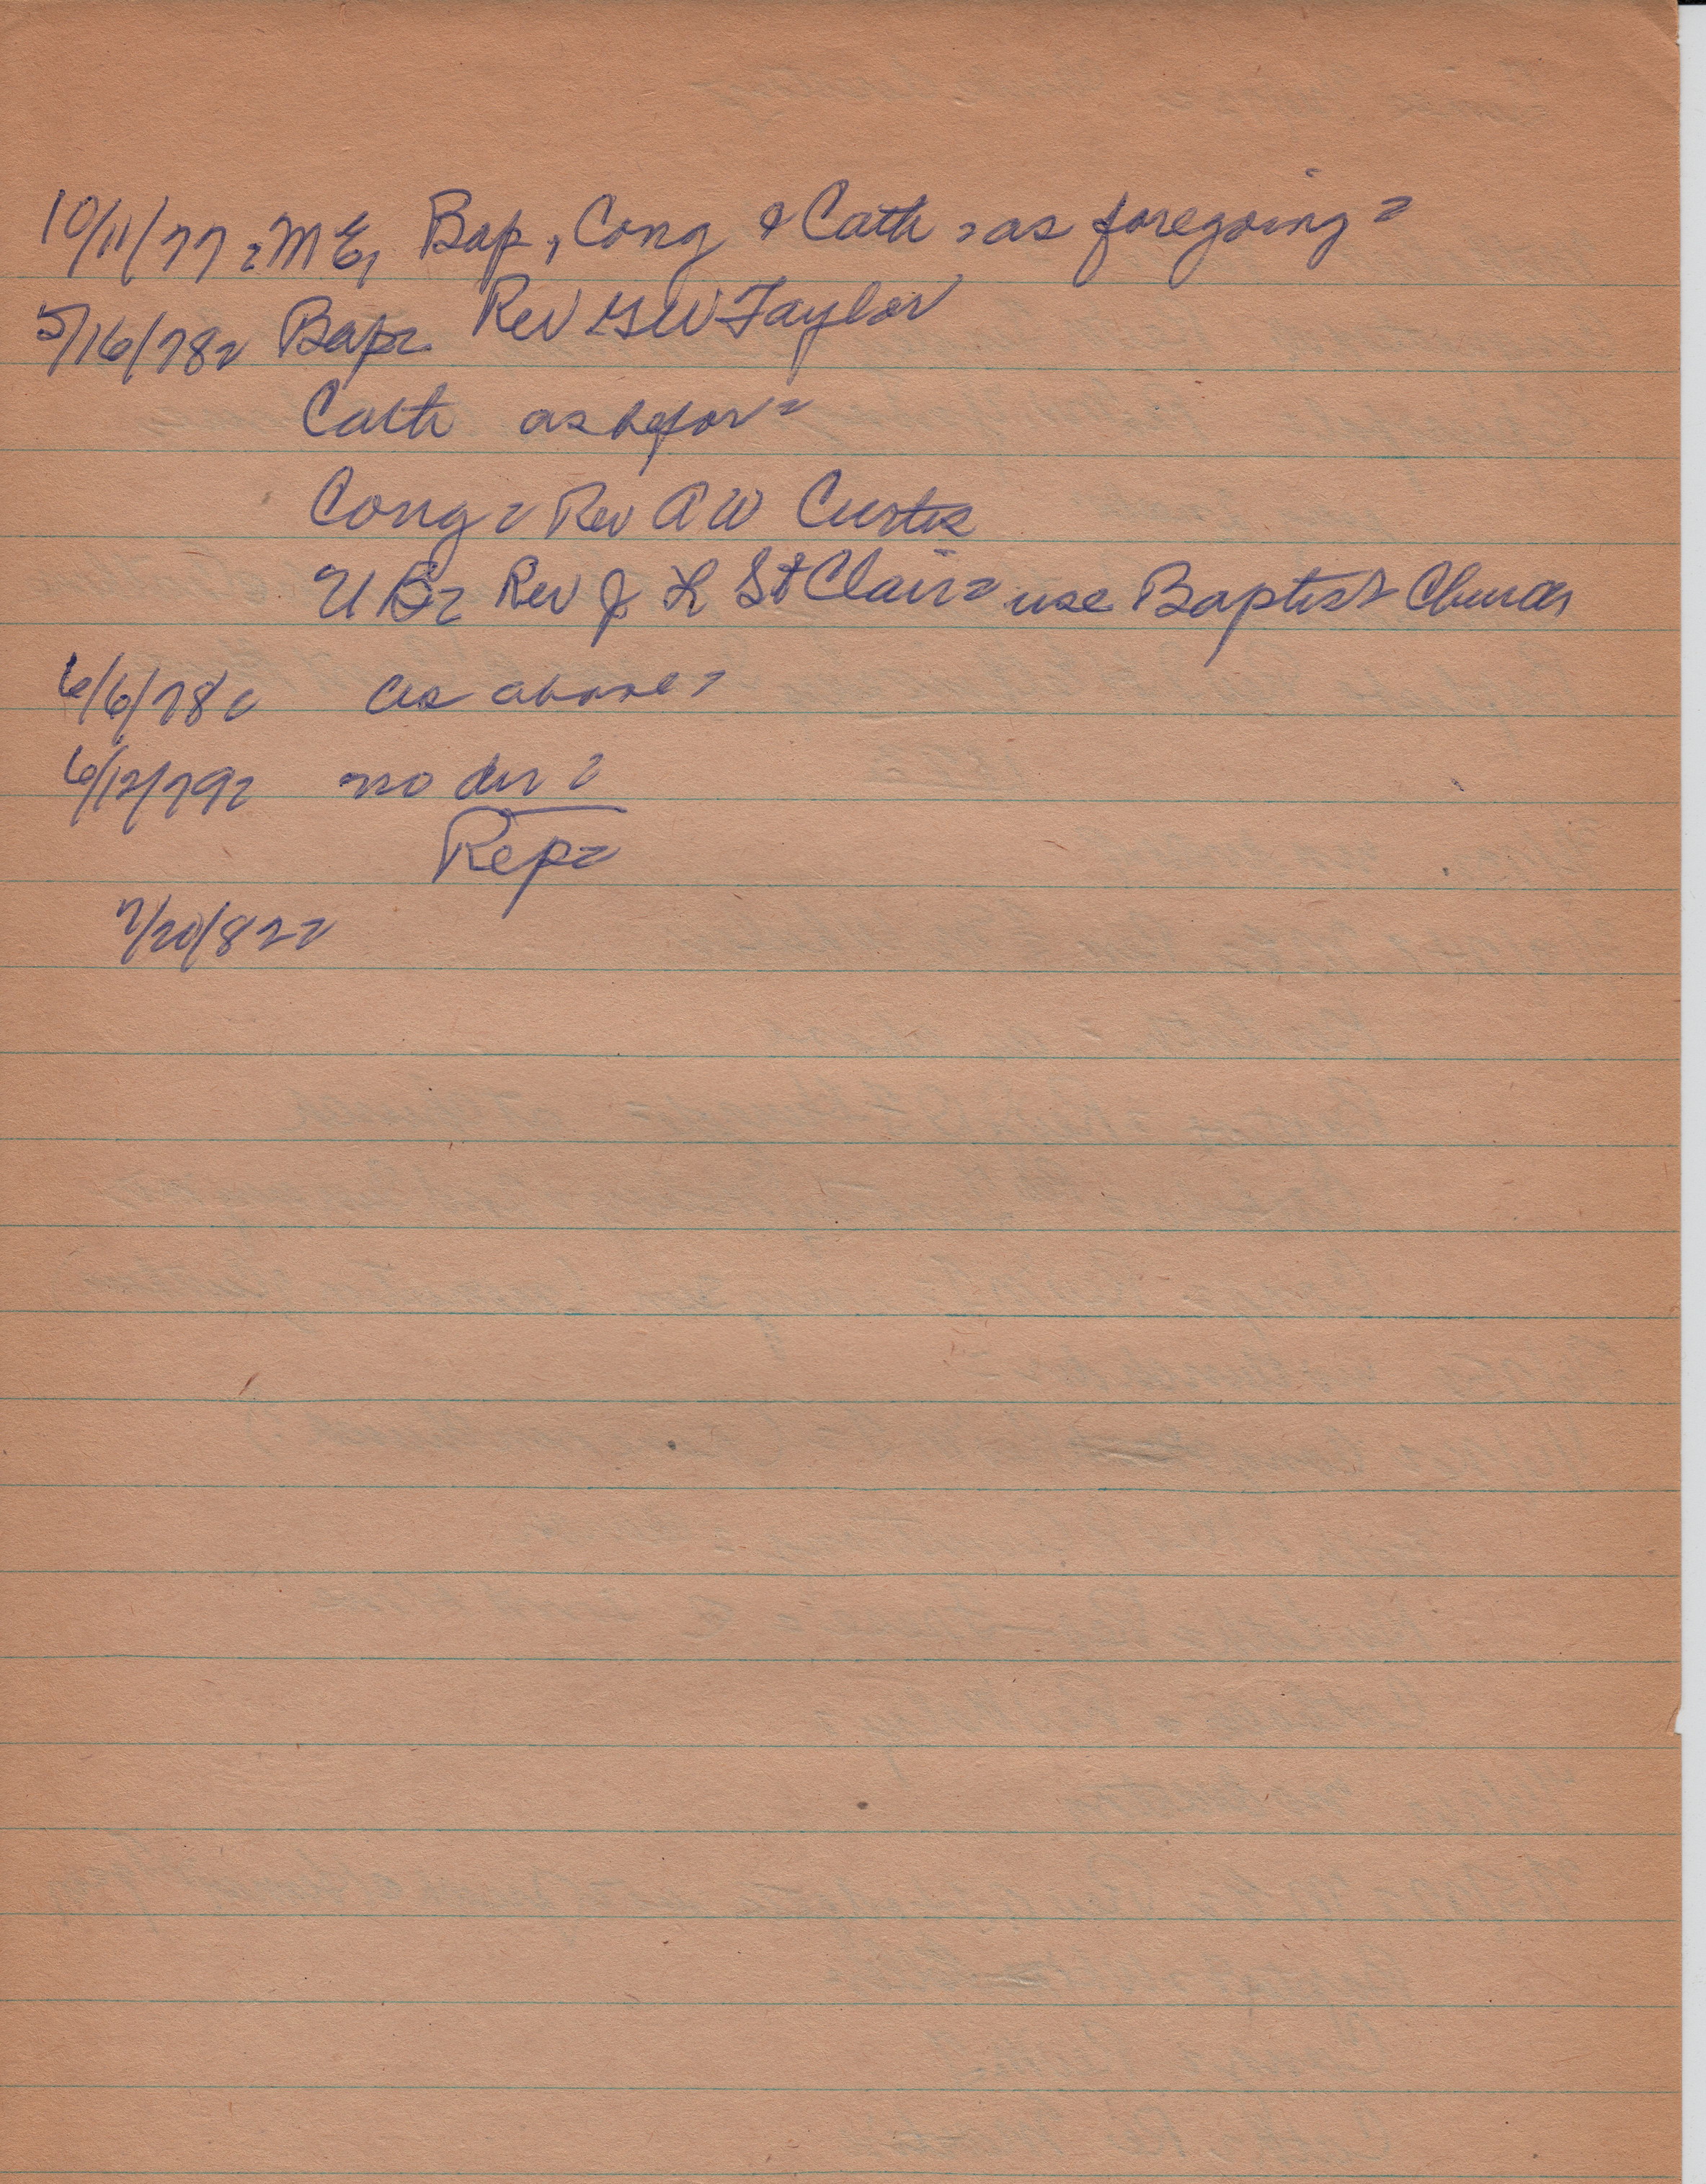 10/11/77 - M E, Bap, Cong & Cath - as foregoing -
5/16/78 - Bap - Rev G W Taylor
Cath as before -
Cong - Rev A W Curtis
U B - Rev J L St Clair - use Baptist Church
6/6/78 - as above -
6/12/79 - no dir -
Rep -
7/20/82 -